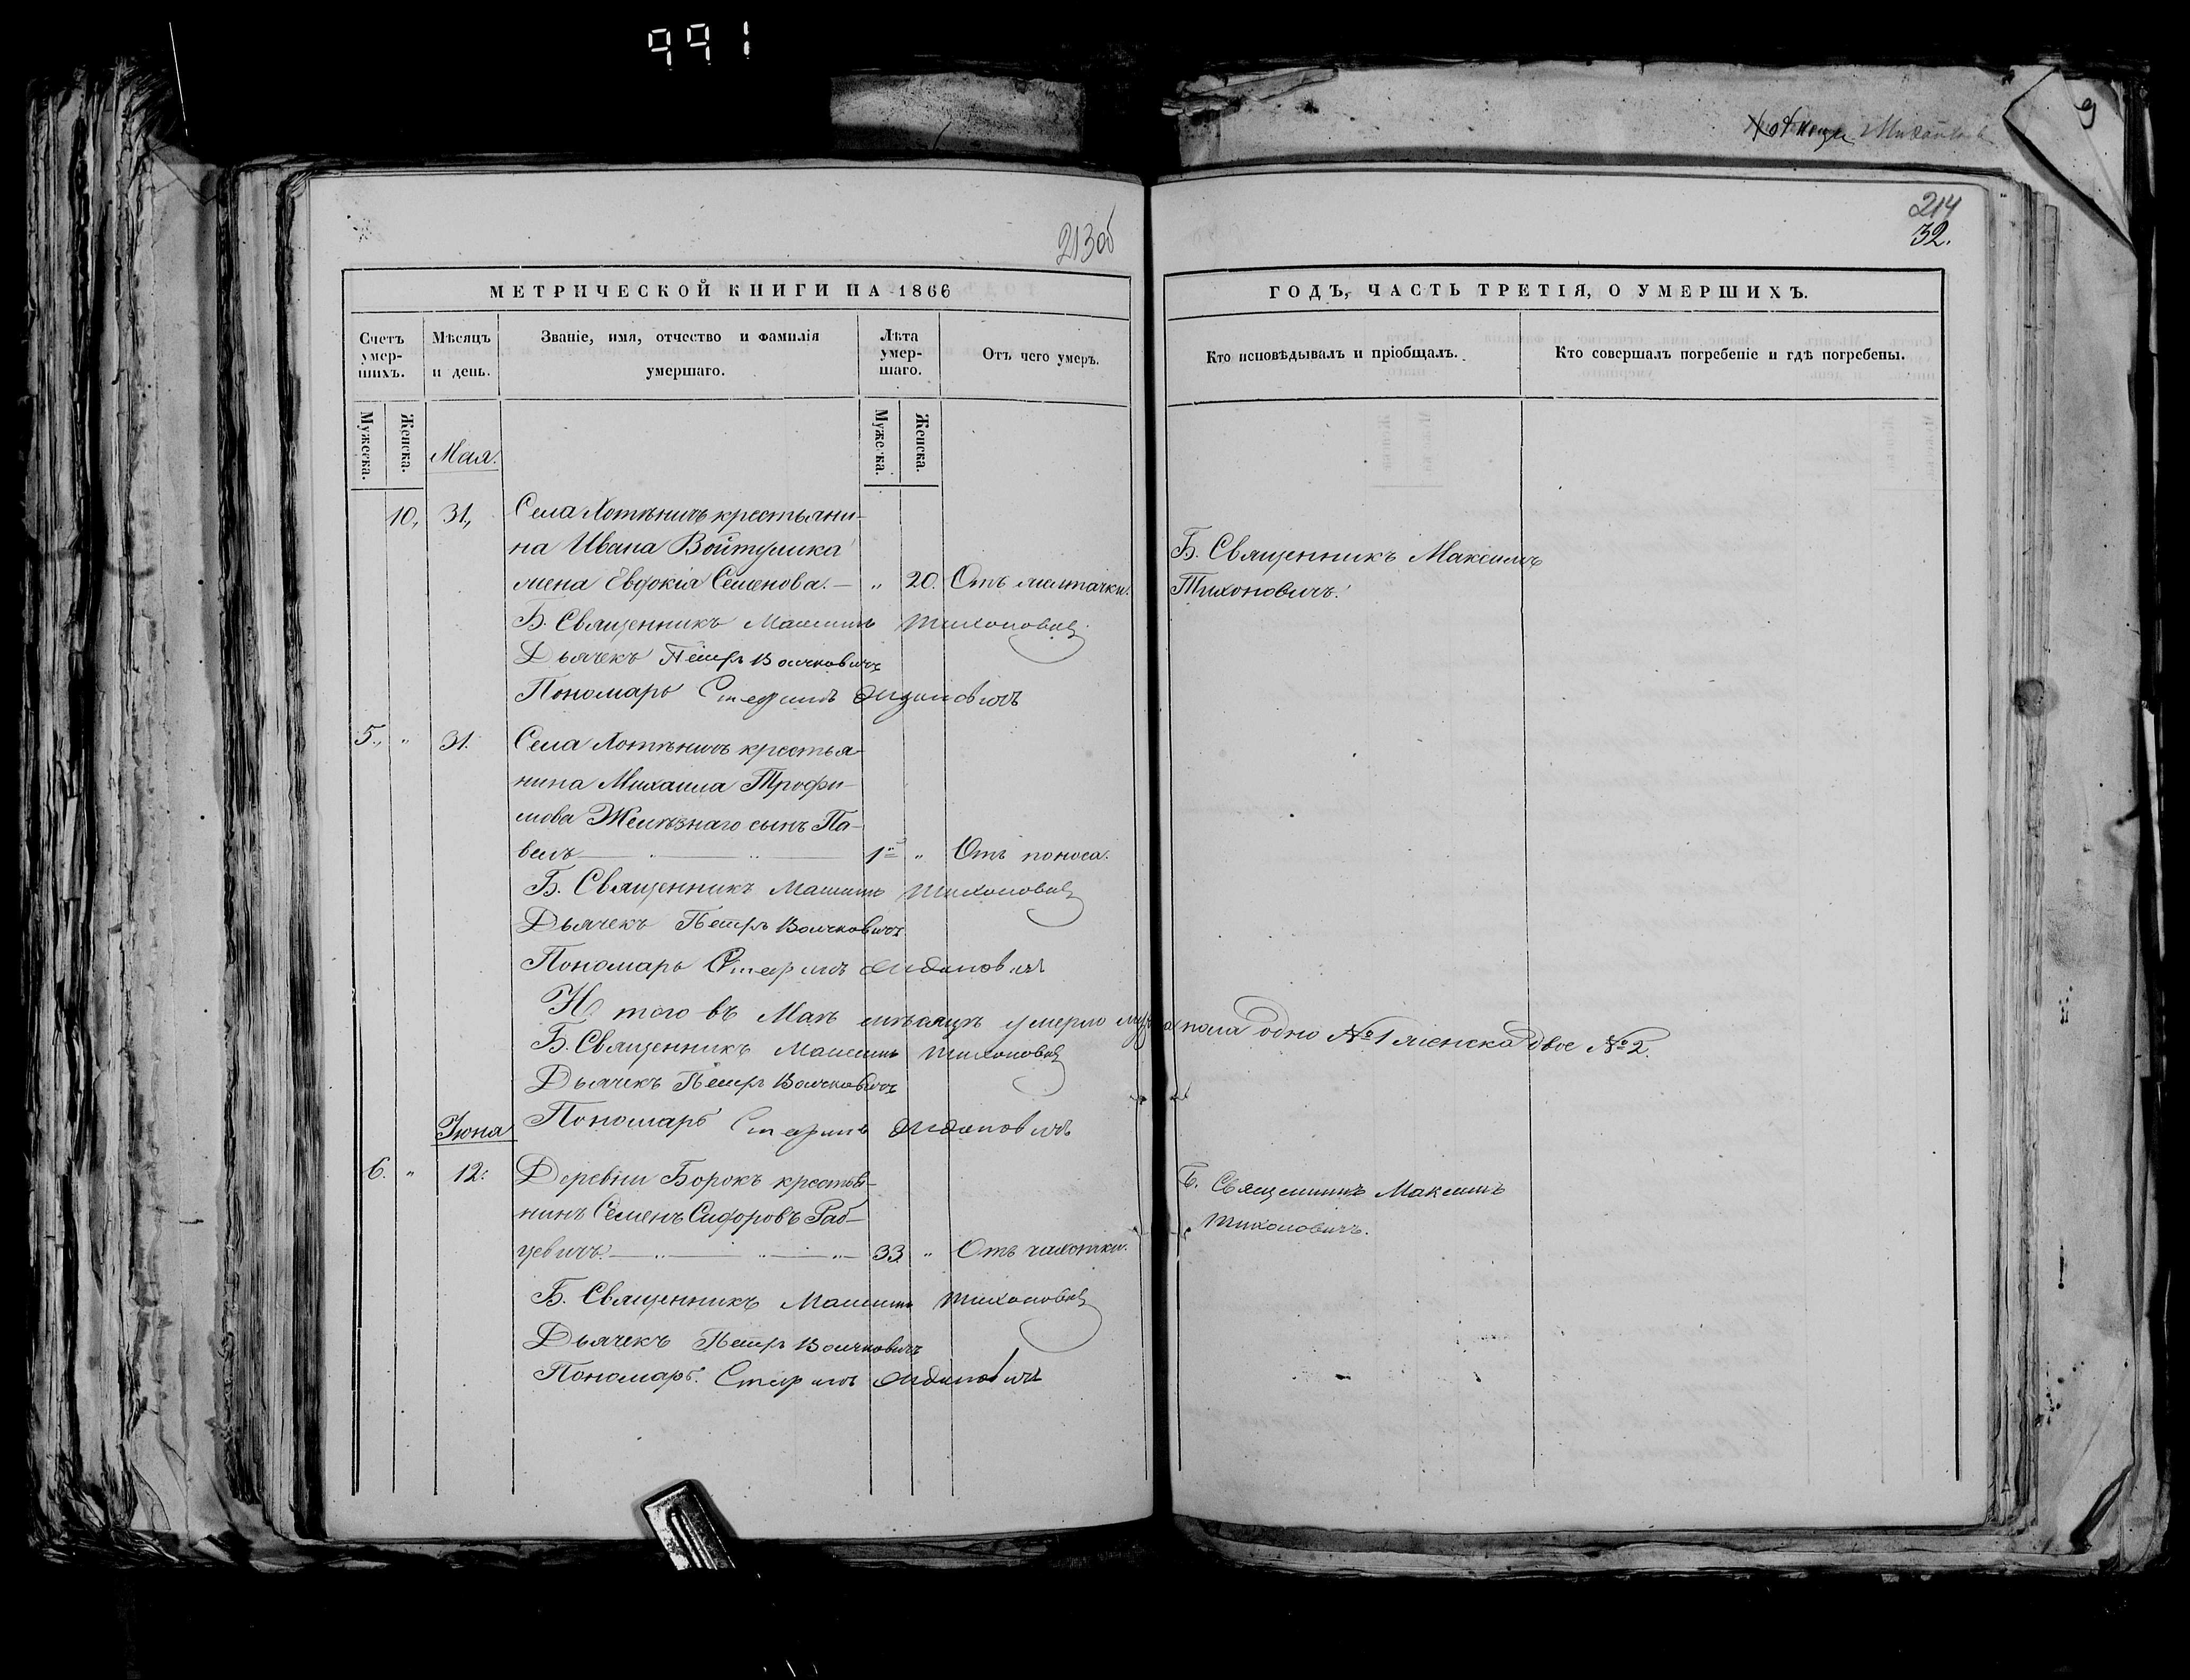 991
9
213об
214
32.
МЕТРИЧЕСКОЙ КНИГИ НА 1866
ГОДЪ, ЧАСТЬ ТРЕТІЯ, О УМЕРШИХЪ.
Счетъ умер-шихъ.
Мѣсяцъ и день.
Званіе, имя, отчество и фамилія умершаго.
Лѣта умер-шаго.
Отъ чего умеръ.
Кто исповѣдывалъ и пріобщалъ.
Кто совершалъ погребеніе и гдѣ погребены.
Мужеска.
Женска.
Мужеска.
Женска.
Мая.
10, 31, Села Хотѣничъ крестьяни-
на Ивана Войтушика
жена Евдокія Семенова. — „ 20. Отъ
Б. Священникъ Максимъ
Тихоновичъ.
Б. Священникъ Максимъ Тихоновичъ
Дьячекъ Петръ Волчковичъ
Пономарь Стефанъ
5., „ 31. Села Хотѣничъ крестья-
нина Михаила Трофи-
мова Желѣзнаго сынъ Па-
велъ 1 „ Отъ поноса.
Б. Священникъ Максимъ Тихоновичъ
Дьячекъ Петръ Волчковичъ
Пономарь Стефанъ
И того въ Маѣ мѣсяцѣ умерло муж. пола одно №1 женска двое №2.
Б. Священникъ Максимъ Тихоновичъ
Дьячекъ Петръ Волчковичъ
Пономарь Стефанъ
Іюня
6. „ 12. Деревни Борокъ крестья-
нинъ Семенъ Сидоровъ Раб-
цевичъ. 33. „ Отъ чахотки.
Б. Священникъ Максимъ
Тихоновичъ.
Б. Священникъ Максимъ Тихоновичъ
Дьячекъ Петръ Волчковичъ
Пономарь. Стефанъ